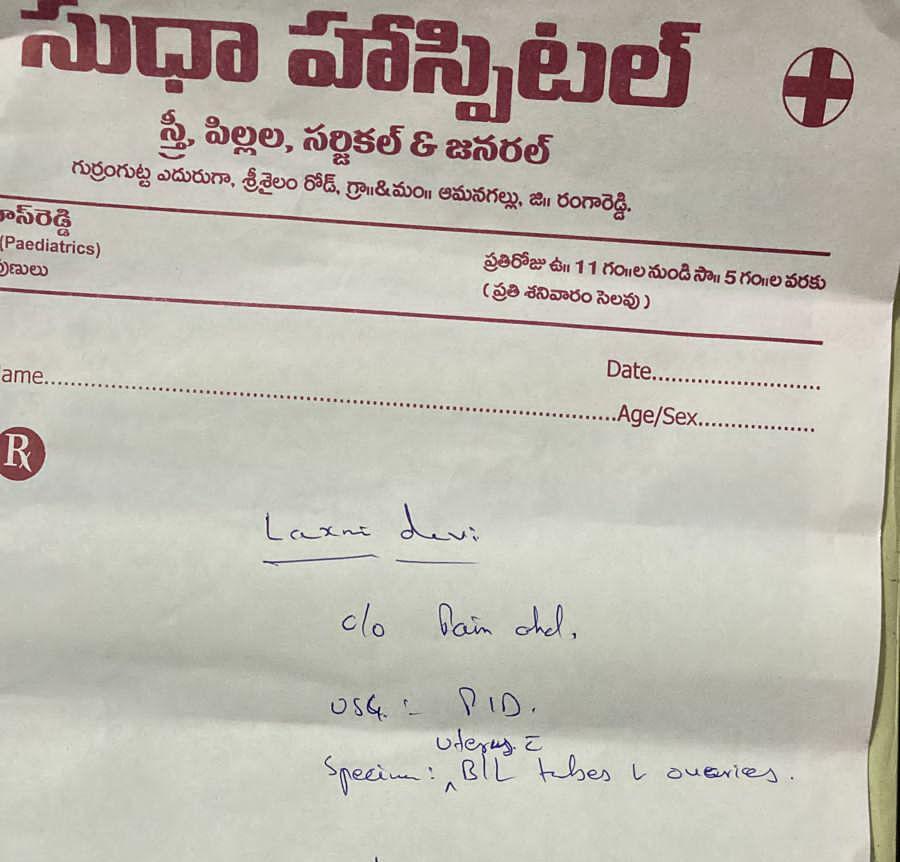 సుధా హాస్పిటల్
స్త్రీ, పిల్లల, సర్జికల్ & జనరల్
గుర్రంగుట్ట ఎదురుగా, శ్రీశైలం రోడ్, గ్రా॥&మం॥ ఆమనగల్లు, జి॥ రంగారెడ్డి.
(Paediatrics)
ప్రతిరోజు ఉ॥ 11 గం॥ల నుండి సా॥ 5 గం॥ల వరకు
( ప్రతి శనివారం సెలవు )
ame
Date
Age/Sex
Rx
Laxmi devi
c/o Pain abd.
USG :- PID.
uterus c̄
Specimen: ^ B/L tubes & ovaries.